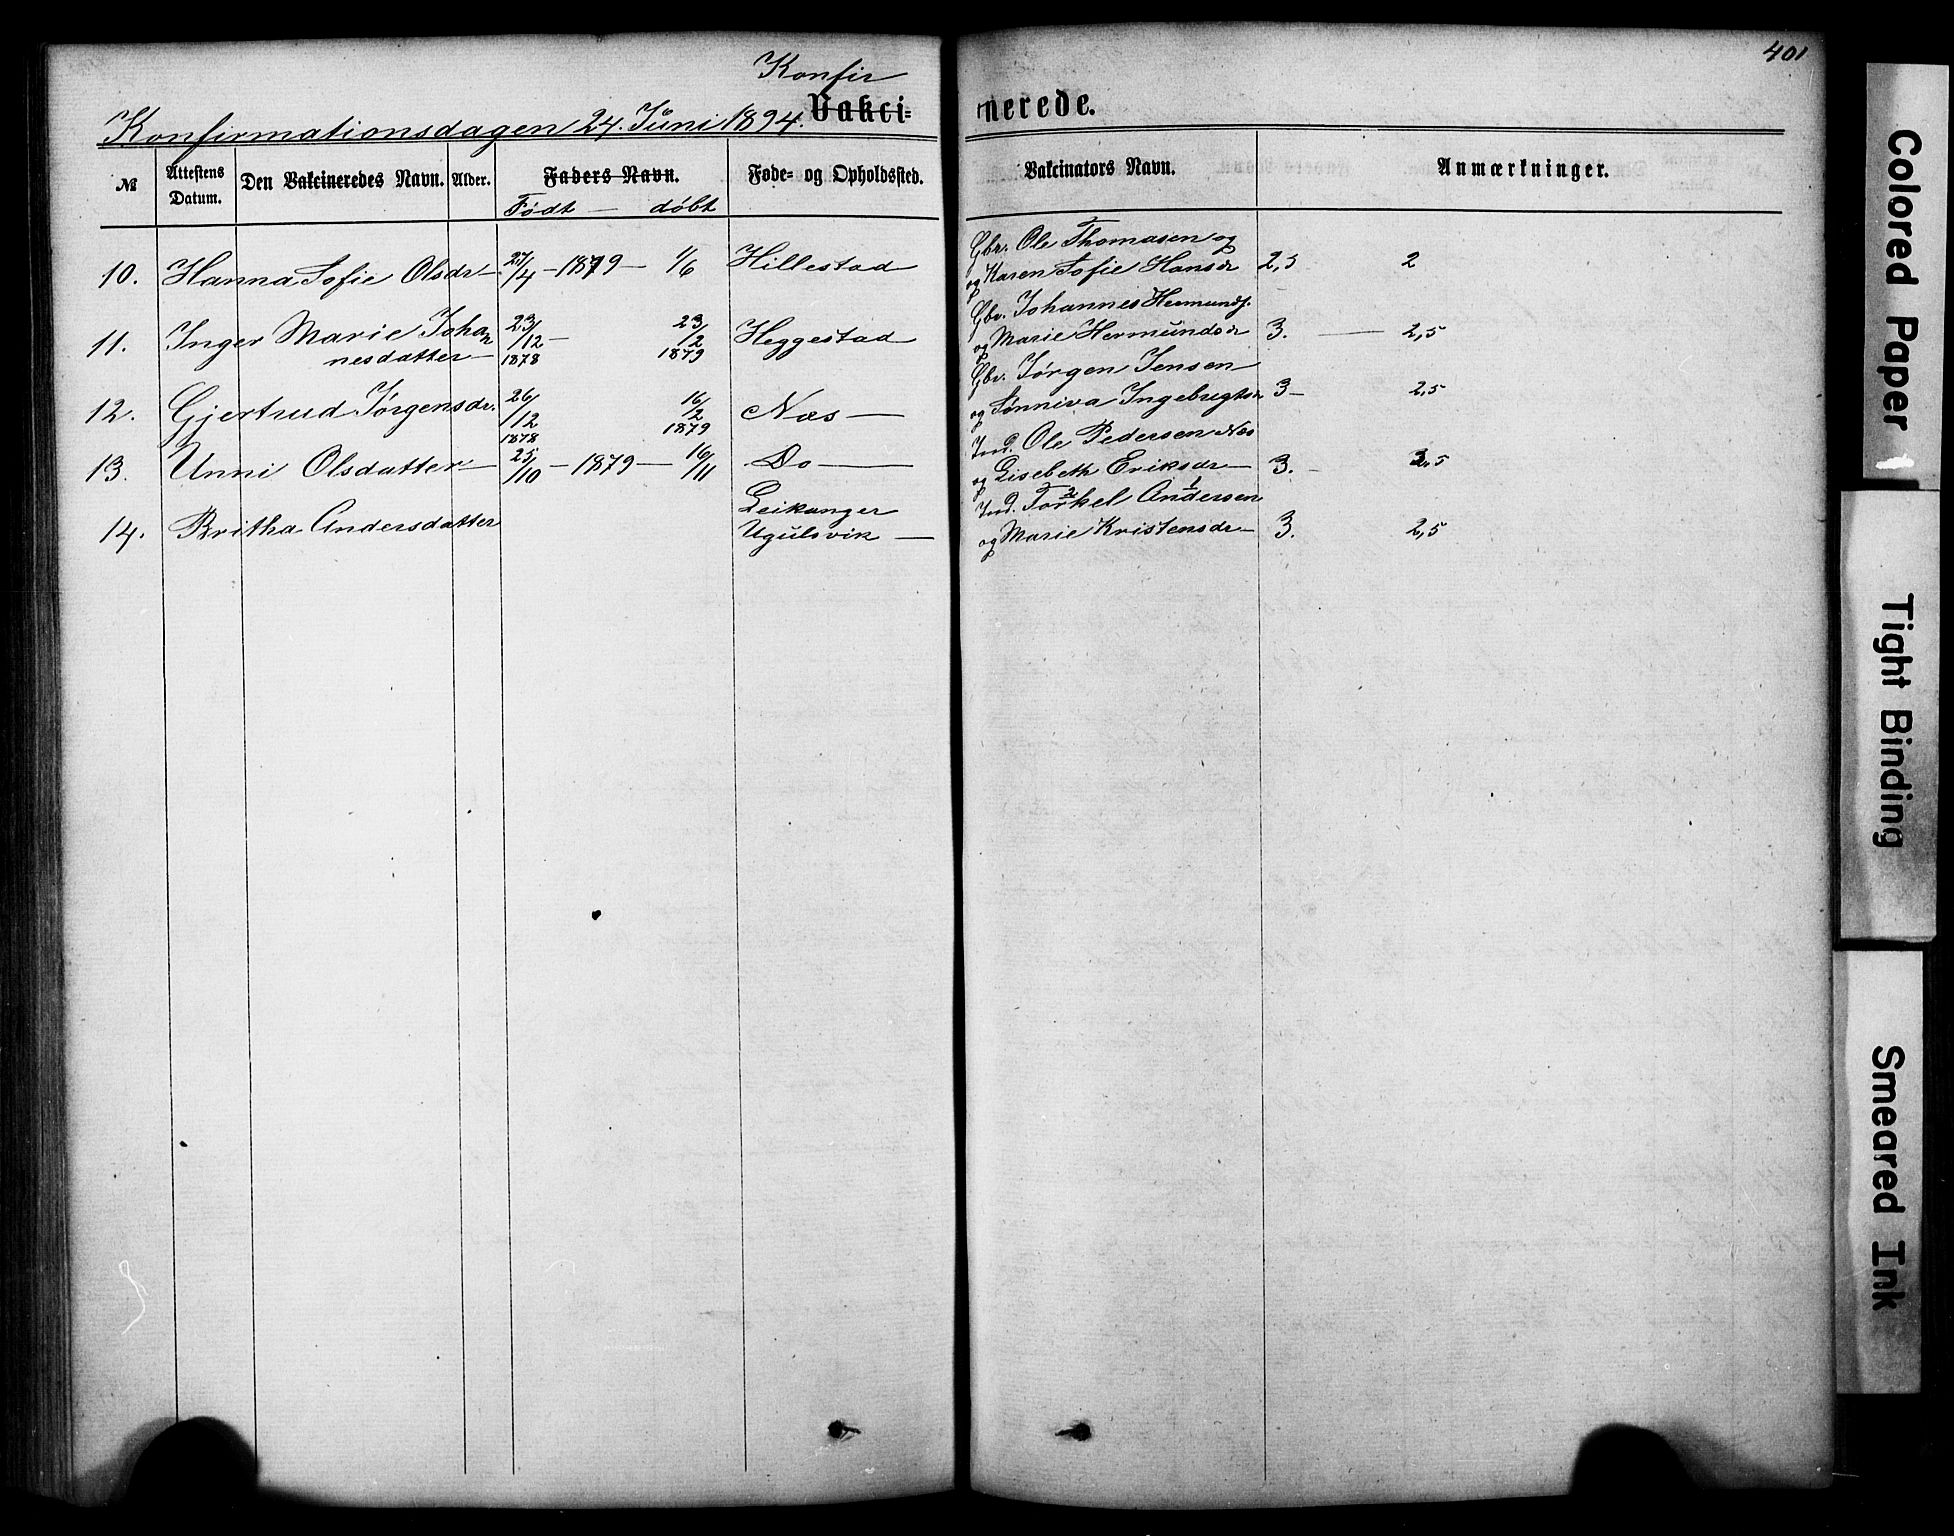 401
Konfir
Konfirmationsdagen 24. Juni 1894. Vakci= nerede.
№ Attestens Datum. Den Vakcineredes Navn. Alder. Faders Navn. Føde- og Opholdssted. Vakcinators Navn. Anmærkninger.
Født — døbt
Gbr. Ole Thomasen og
10. Hanna Sofie Olsdr — 27/4 — 1879 — 1/6 Hillestad og Karen Sofie Hansdr 2,5 2
Gbr. Johannes Hermunds.
11. Inger Marie Johan 23/12 — 23/2 Heggestad og Marie Hermundsdr 3. — 2,5
nesdatter — 1878 1879
Gbr. Jørgen Jensen
12. Gjertrud Jørgensdr. 26/12 16/2 Næs — og Sønniva Ingebregtsdr 3 — 2,5
1878 1879
Ind. Ole Pedersen Næs
13. Unni Olsdatter — 25/10 — 1879 — 16/11 Do — og Lisebeth Eriksdr — 3. — 2,5
Leikanger Ind. Torkel Andersen
14. Britha Andersdatter Ugulsvik — og Marie Kristensdr — 3. 2,5
Colored Paper
Tight Binding
Smeared Ink